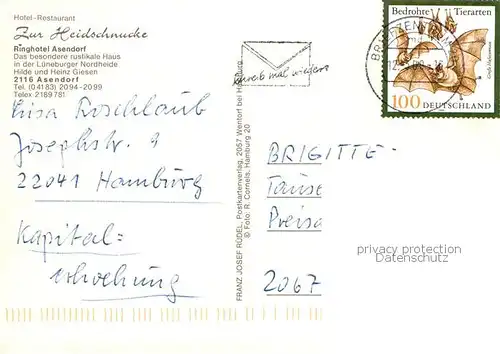 Hotel-Restaurant
Zur Heidschnucke
Ringhotel Asendorf
Das besondere rustikale Haus
in der Lüneburger Nordheide
Hilde und Heinz Giesen
2116 Asendorf
Tel. (04183) 2094-2099
Telex 2189781
Schreib mal wieder
Bedrohte Tierarten
BRIEFZENTRUM
100 DEUTSCHLAND
Roschlaub
Josephstr. 9
22041 Hamburg
Kapital=
erhoehung
FRANZ JOSEF RÜDEL, Postkartenverlag, 2057 Wentorf bei Hamburg
© Foto: R. Cornels, Hamburg 20
BRIGITTE-
Tause
Preisa
2067
privacy protection
Datenschutz